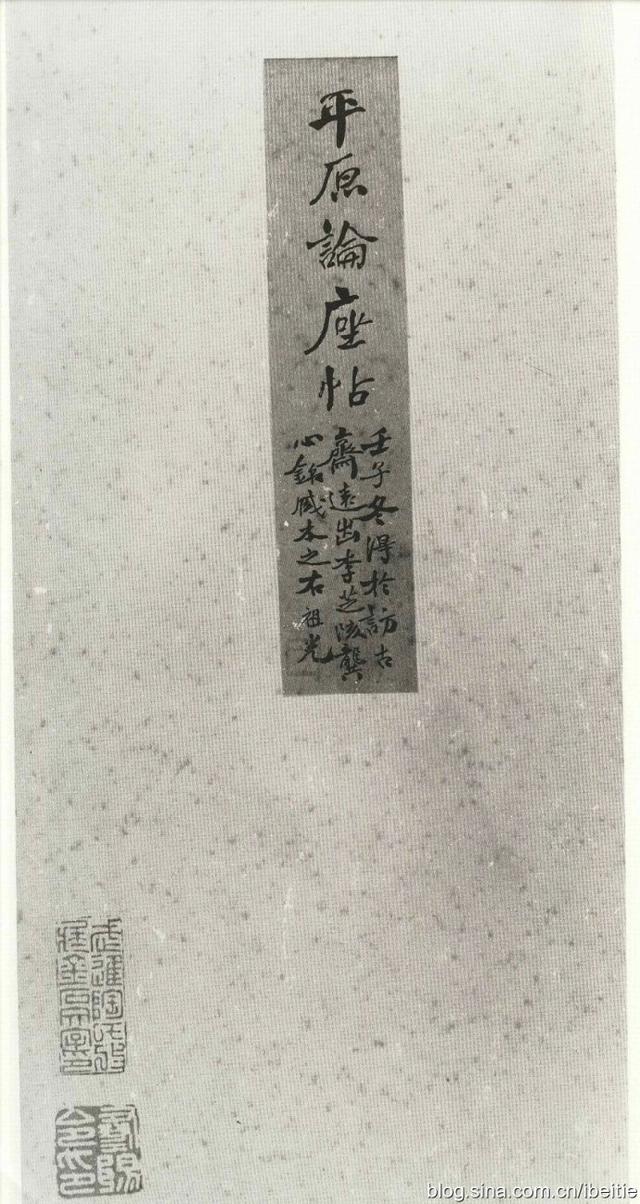 平原論座帖
壬子冬得於訪古
齋遠出李芝陔龔
心銘臧本之右祖光
blog.sina.com.cn/ibeitie